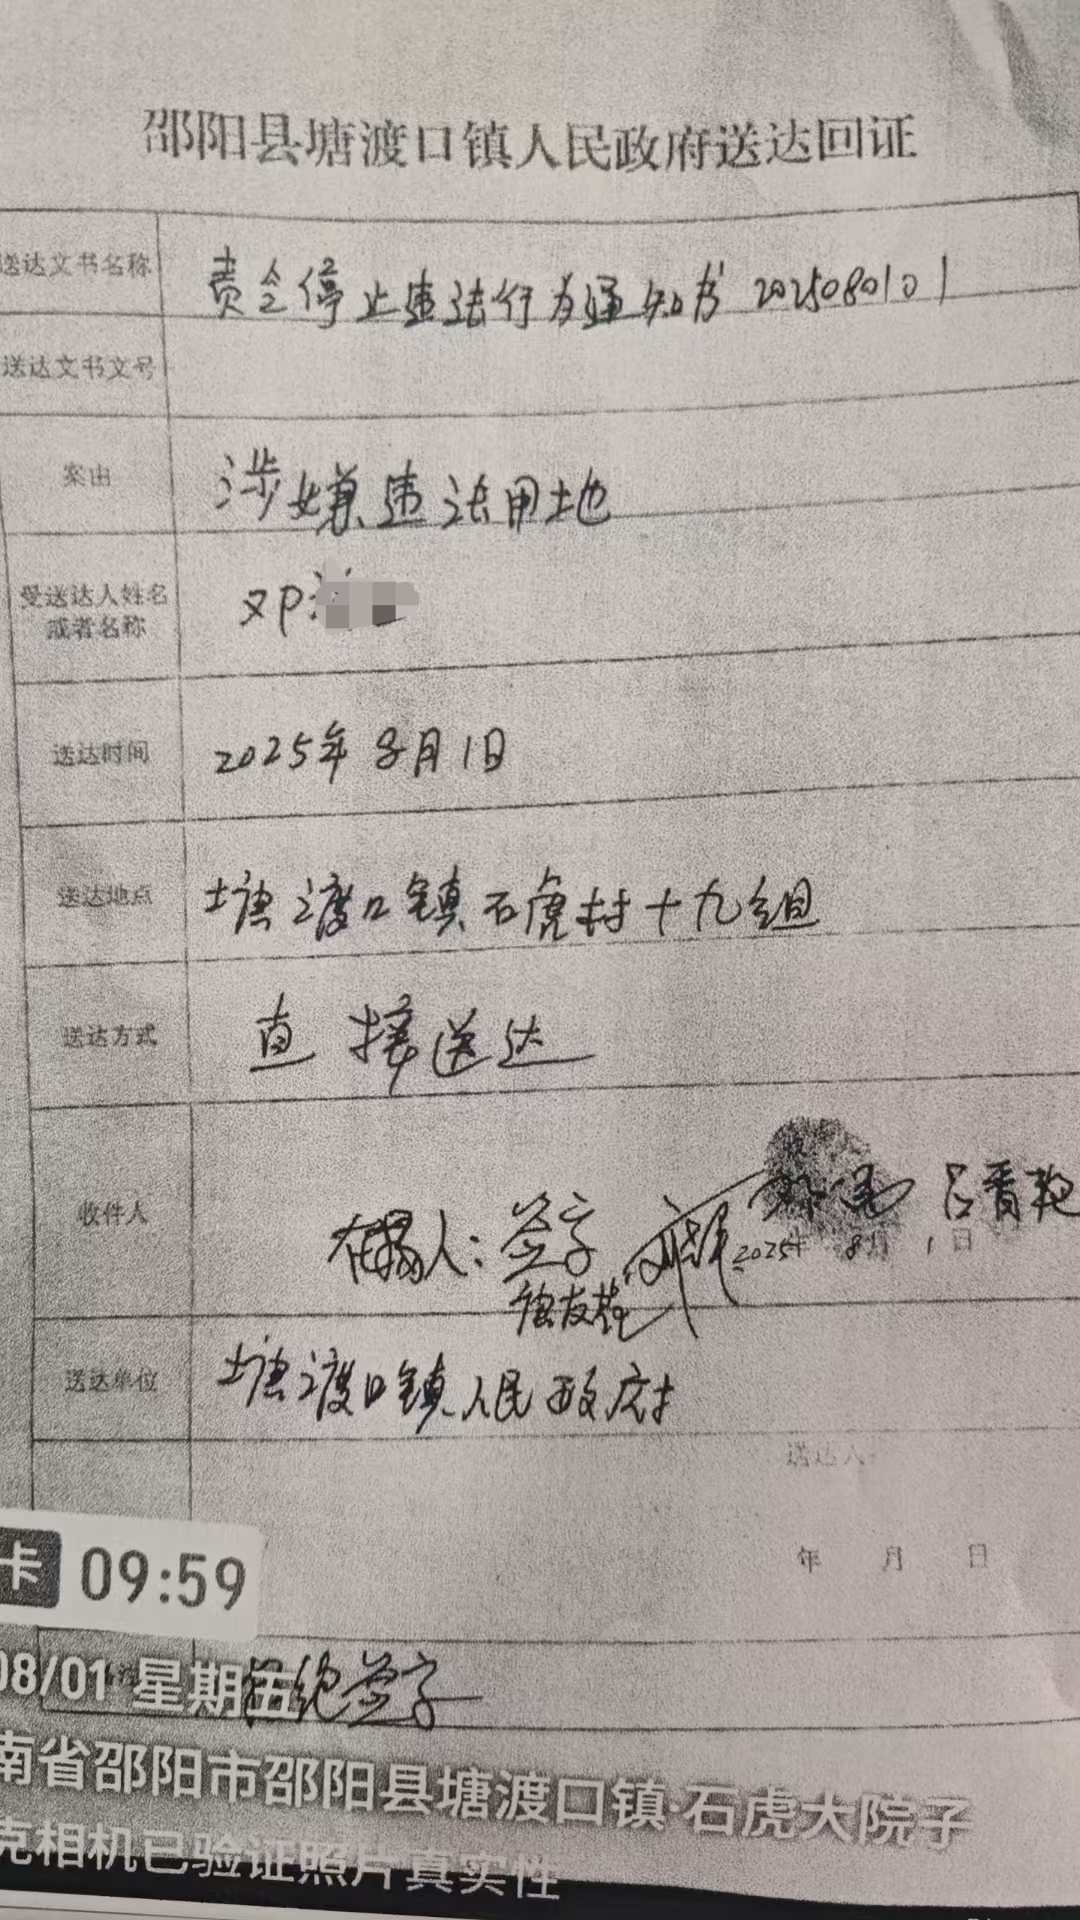 邵阳县塘渡口镇人民政府送达回证
送达文书名称 责令停止违法行为通知书 2025080101
送达文书文号
案由 涉嫌违法用地
受送达人姓名
或者名称 邓
送达时间 2025年8月1日
送达地点 塘渡口镇石虎村十九组
送达方式 直接送达
收件人 在场人：签字 吕晋艳
2025年 8月 1日
送达单位 塘渡口镇人民政府
送达人
年 月 日
卡 09:59
拒绝签字
08/01 星期五
南省邵阳市邵阳县塘渡口镇·石虎大院子
克相机已验证照片真实性